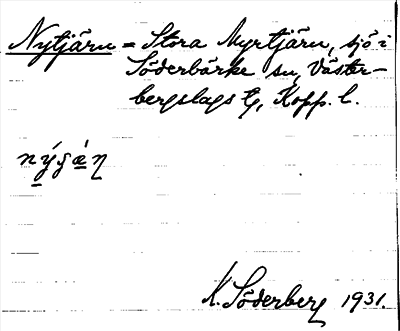 Nytjärn = Stora Myrtjärn, sjö i
Söderbärke sn, Väster-
bergslags tg, Kopp. l.
K. Söderberg 1931.